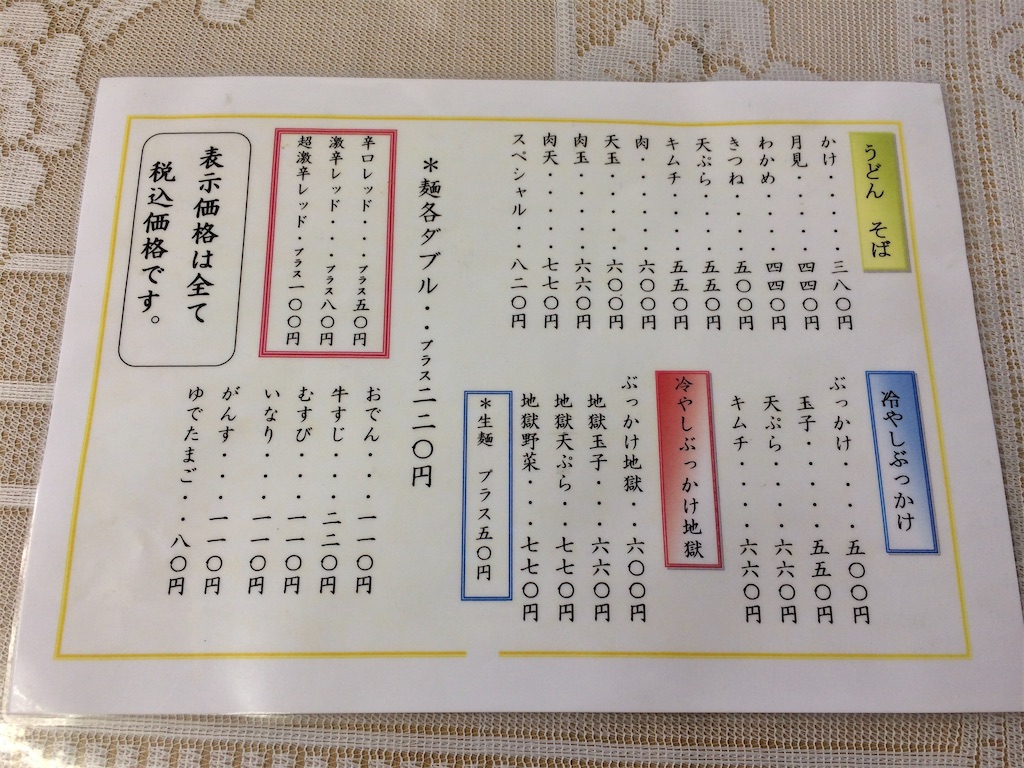 うどん そば
かけ・・・・・三八〇円
月見・・・・・四四〇円
わかめ・・・・四四〇円
きつね・・・・五〇〇円
天ぷら・・・・五五〇円
キムチ・・・・五五〇円
肉・・・・・・六〇〇円
天玉・・・・・六〇〇円
肉玉・・・・・六六〇円
肉天・・・・・七七〇円
スペシャル・・八二〇円
冷やしぶっかけ
ぶっかけ・・・・五〇〇円
玉子・・・・・五五〇円
天ぷら・・・・六六〇円
キムチ・・・・六六〇円
冷やしぶっかけ地獄
ぶっかけ地獄・・六〇〇円
地獄玉子・・・六六〇円
地獄天ぷら・・七七〇円
地獄野菜・・・七七〇円
*生麺 プラス五〇円
*麺各ダブル・・プラス二二〇円
辛口レッド・・・プラス五〇円
激辛レッド・・・プラス八〇円
超激辛レッド・プラス一〇〇円
おでん・・・一一〇円
牛すじ・・・二二〇円
むすび・・・一一〇円
いなり・・・一一〇円
がんす・・・一一〇円
ゆでたまご・・八〇円
表示価格は全て
税込価格です。